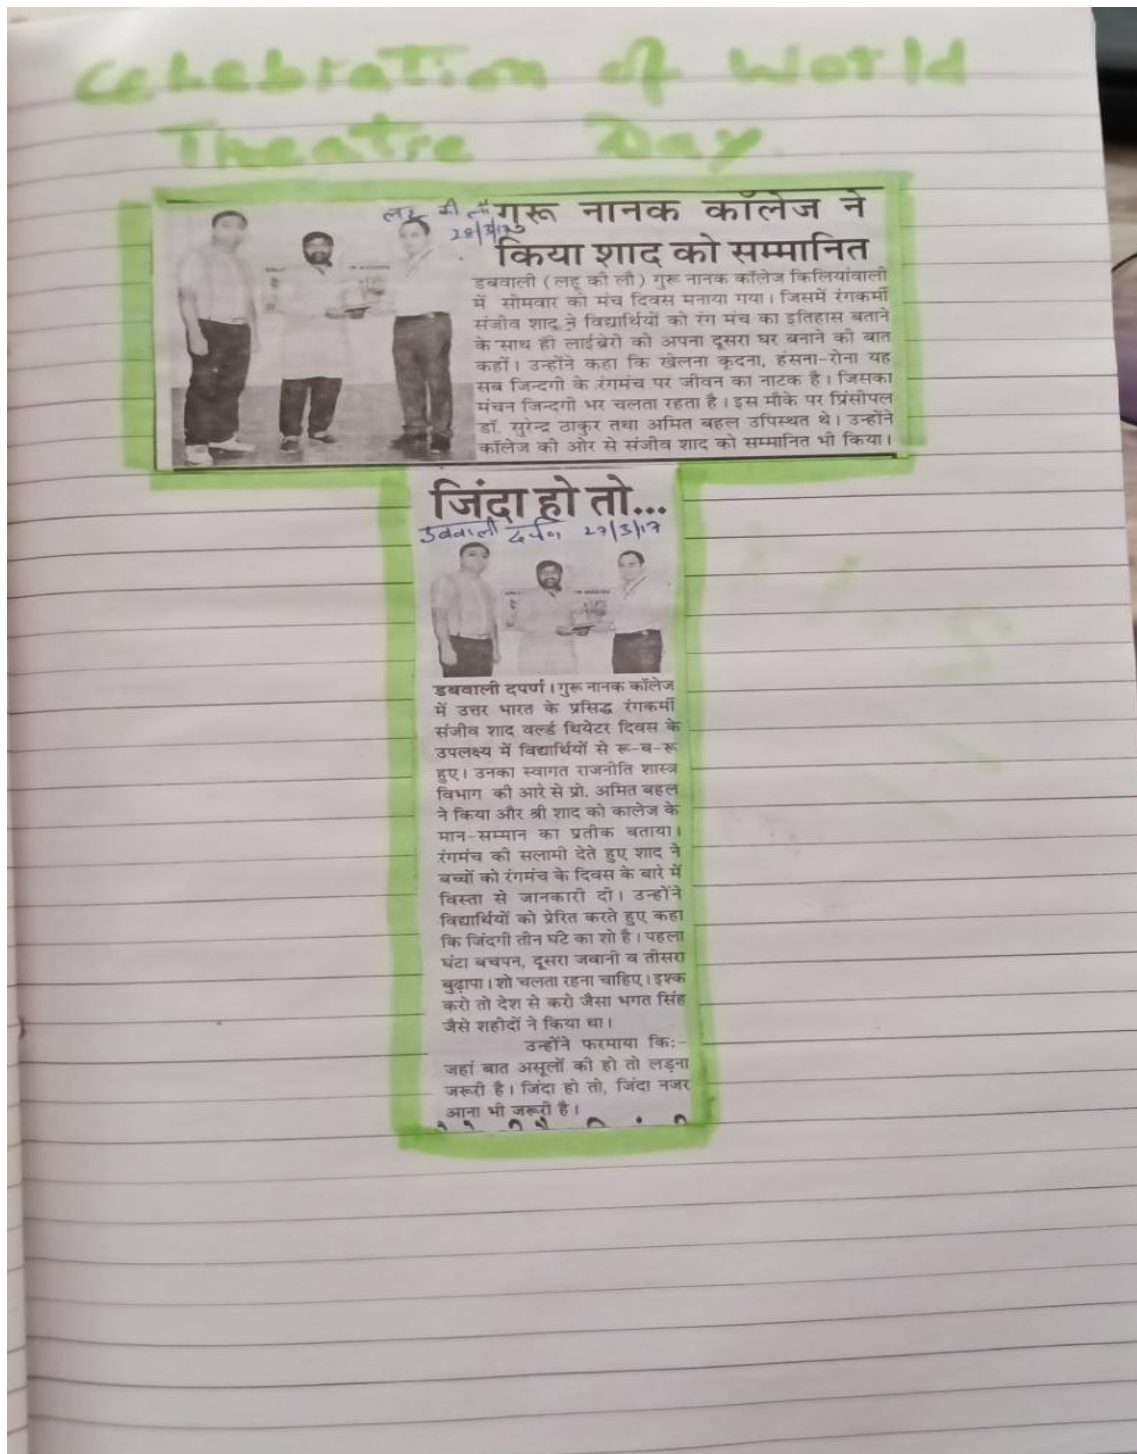 Celebration of World
Theatre Day
लहू की लौ
28/3/17
गुरू नानक कॉलेज ने
किया शाद को सम्मानित
डबवाली (लहू की लौ) गुरू नानक कॉलेज किलियांवाली
में सोमवार को मंच दिवस मनाया गया। जिसमें रंगकर्मी
संजीव शाद ने विद्यार्थियों को रंग मंच का इतिहास बताने
के साथ ही लाईब्रेरी को अपना दूसरा घर बनाने की बात
कहीं। उन्होंने कहा कि खेलना कूदना, हंसना-रोना यह
सब जिन्दगी के रंगमंच पर जीवन का नाटक है। जिसका
मंचन जिन्दगी भर चलता रहता है। इस मौके पर प्रिंसीपल
डॉ. सुरेन्द्र ठाकुर तथा अमित बहल उपिस्थत थे। उन्होंने
कॉलेज की ओर से संजीव शाद को सम्मानित भी किया।
जिंदा हो तो...
डबवाली दर्पण 27/3/17
डबवाली दपर्ण। गुरू नानक कॉलेज
में उत्तर भारत के प्रसिद्ध रंगकर्मी
संजीव शाद वर्ल्ड थियेटर दिवस के
उपलक्ष्य में विद्यार्थियों से रू-ब-रू
हुए। उनका स्वागत राजनीति शास्त्र
विभाग की आरे से प्रो. अमित बहल
ने किया और श्री शाद को कालेज के
मान-सम्मान का प्रतीक बताया।
रंगमंच की सलामी देते हुए शाद ने
बच्चों को रंगमंच के दिवस के बारे में
विस्ता से जानकारी दी। उन्होंने
विद्यार्थियों को प्रेरित करते हुए कहा
कि जिंदगी तीन घंटे का शो है। पहला
घंटा बचपन, दूसरा जवानी व तीसरा
बुढ़ापा। शो चलता रहना चाहिए। इश्क
करो तो देश से करो जैसा भगत सिंह
जैसे शहीदों ने किया था।
उन्होंने फरमाया कि:-
जहां बात असूलों की हो तो लड़ना
जरूरी है। जिंदा हो तो, जिंदा नजर
आना भी जरूरी है।